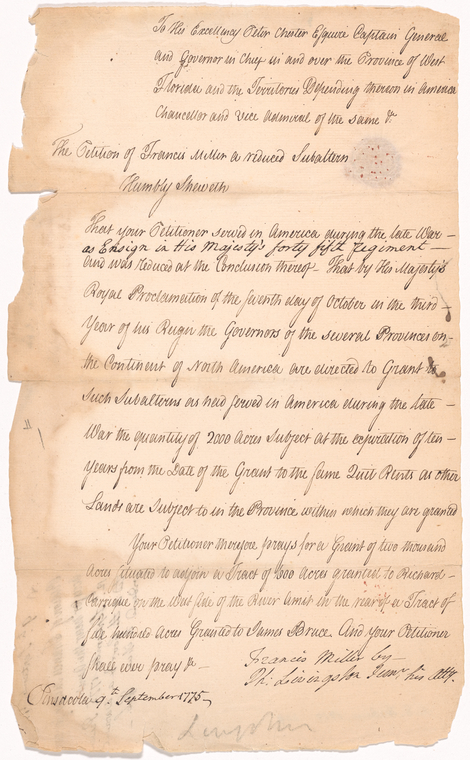 To His Excellency Peter Chester Esquire Captain General
and Governor in Chief in and over the Province of West
Florida and the Territories Depending thereon in America
Chancellor and Vice Admiral of the same &c
The Petition of Francis Miller a reduced Subaltern
Humbly Sheweth
That your Petitioner served in America during the late War
as Ensign in His Majesty's forty fifth regiment
and was reduced at the Conclusion thereof - That by His Majesty's
Royal Proclamation of the seventh day of October in the third
Year of his Reign the Governors of the several Provinces on
the Continent of North America are directed to Grant to
such Subalterns as had served in America during the late
War the quantity of 2000 Acres Subject at the expiration of ten
Years from the Date of the Grant to the same Quit Rents as other
Lands are Subject to in the Province within which they are granted
Your Petitioner therefore prays for a Grant of two thousand
Acres situated to adjoin a Tract of 600 Acres granted to Richard
on the West side of the River Amit in the rear of a Tract of
five hundred Acres Granted to James Bruce. And your Petitioner
shall ever pray &c
Francis Miller by
Ph: Livingston Junr his Atty.
Pensacola 9th September 1775